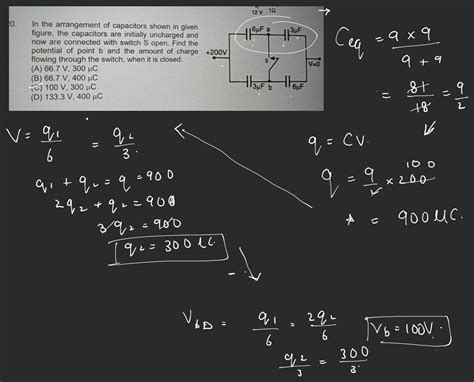 12 V 1Ω
0. In the arrangement of capacitors shown in given
figure, the capacitors are initially uncharged and
now are connected with switch S open. Find the
potential of point b and the amount of charge
flowing through the switch, when it is closed:
(A) 66.7 V, 300 μC
(B) 66.7 V, 400 μC
(C) 100 V, 300 μC
(D) 133.3 V, 400 μC
6μF a 3μF
+200V
S
V=0
3μF b 6μF
Ceq = 9 × 9
9 + 9
= 81 = 9
18 2
q = CV.
100
q = 9 × 200
= 900 μC.
V = q1 = q2
6 3
q1 + q2 = q = 900
2q2 + q2 = 900
3q2 = 900
q2 = 300 μC.
VbD = q1 = 2q2
6 6
q2 = 300
3 3
Vb = 100V.